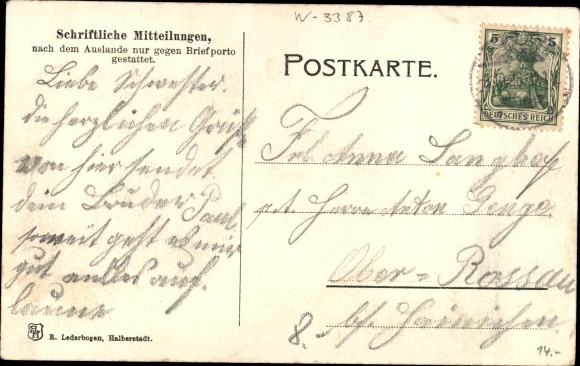 W-3387.
Schriftliche Mitteilungen,
nach dem Auslande nur gegen Briefporto
gestattet.
POSTKARTE.
5 5
DEUTSCHES REICH
Liebe Schwester.
die herzlichen Grüße
von hier sendet
dein Bruder Paul
soweit geht es mir
gut auf
laune
Frl. Anna Langhof
Herrn Anton
Ober-Rossau
b/ Hainichen.
8.-
14.-
R. Lederbogen, Halberstadt.